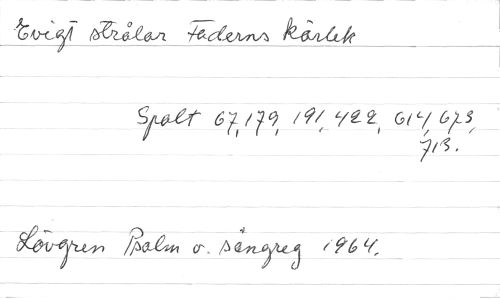 Evigt strålar Faderns kärlek
Spalt 67, 179, 191, 422, 614, 673,
713.
Lövgren Psalm o. sångreg 1964.